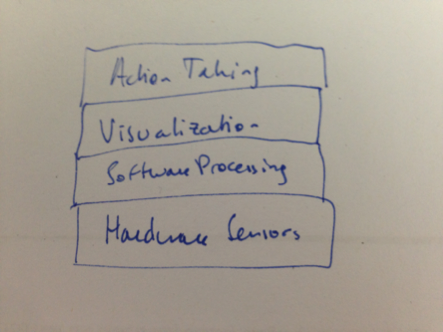 Action Taking
Visualization
Software Processing
Hardware Sensors